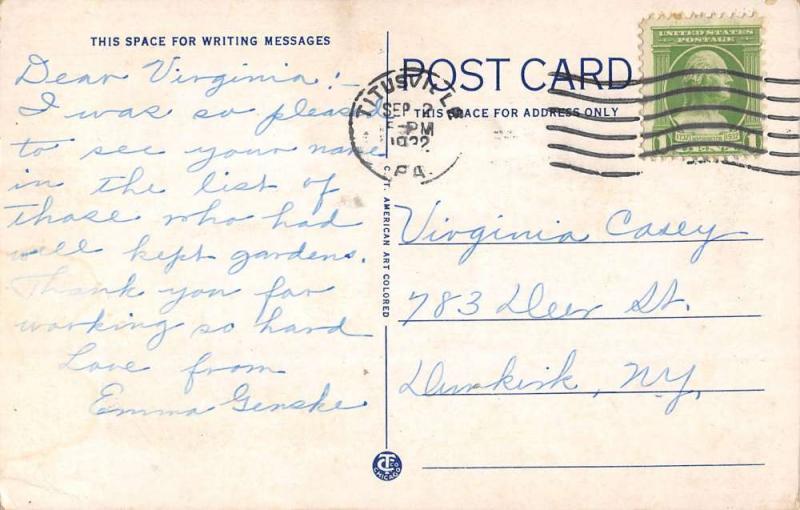 THIS SPACE FOR WRITING MESSAGES
Dear Virginia:-
I was so pleased
to see your name
in the list of
those who had
well kept gardens.
Thank you for
working so hard
Love from
Emma Genske
POST CARD
THIS SPACE FOR ADDRESS ONLY
TITUSVILLE
SEP 2
PM
1932
PA.
UNITED STATES
POSTAGE
Virginia Casey
783 Deer St.
Dunkirk, N.Y.
C. T. AMERICAN ART COLORED
CHICAGO